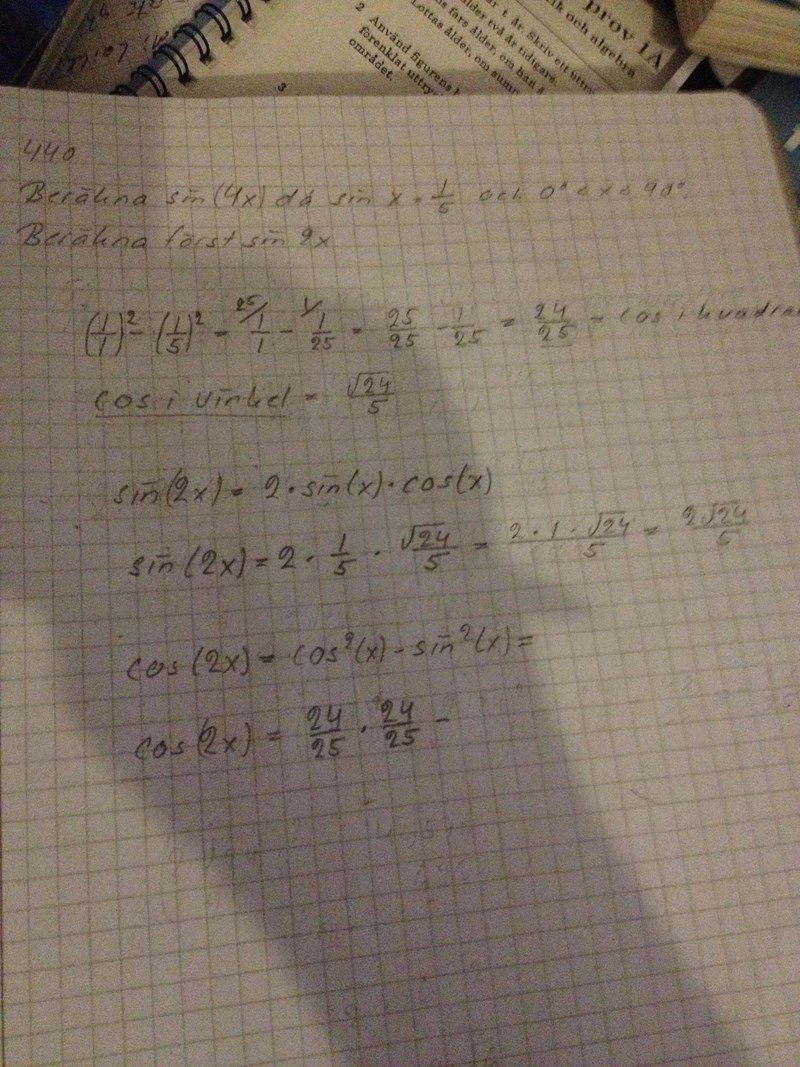 prov 1A
ik och algebra
r t år. Skriv ett uttry
ålder två år tidigare.
s fars ålder, om han ä
Lottas ålder, om sumr
2 Använd figurens
förenklat uttry
området.
3
440
Beräkna sin(4x) då sin x = 1/5 och 0° < x < 90°.
Beräkna först sin 2x
(1/1)² - (1/5)² = 25/ 1/1 - 1/ 1/25 = 25/25 - 1/25 = 24/25 = cos i kvadra
cos i vinkel = √24/5
sin(2x) = 2 · sin(x) · cos(x)
sin(2x) = 2 · 1/5 · √24/5 = 2 · 1 · √24/5 = 2√24/5
cos(2x) = cos²(x) - sin²(x) =
cos(2x) = 24/25 · 24/25 -